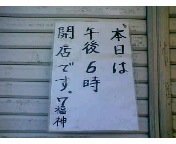 本日は
午後6時
開店です。7福神